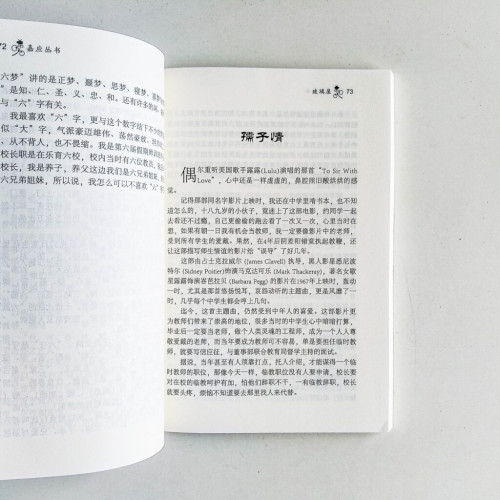 72 嘉应丛书
六梦”讲的是正梦、噩梦、思梦、寝梦、
是知、仁、圣、义、忠、和。还有许多的词、
与“六”字有关。
我最喜欢“六”，更与这个数字结下不
似“大”字，气派豪迈雄伟、荡然豪放、
，从不背人，也不畏缩。我是第六届假期
校长职是在乐育六校，校内当时有六位教员，
校长，我是养子，养父这边我们是六兄弟
六兄弟姐妹，所以说，我怎么可以不喜欢“六”
玻璃屋 73
孺子情
偶尔重听英国歌手露露(Lulu)演唱的那首“To Sir With
Love”，心中还是一样虔虔的，鼻腔照旧酸烘烘的感
觉。
记得那部同名字影片上映时，我还在中学里啃书本，也不知
道怎么的，十八九岁的小伙子，竟迷上了这部电影，的同学一起
去看还不过瘾，自己更偷偷的跑去看了一次又一次，心里当时在
想，如果有朝一日我有机会当教师，我一定要像影片中的老师，
受到所有学生的爱戴。果然，在4年后阴差阳错窝执起教鞭，还
让这部描写师生情谊的影片给“误导”了好几年。
这部由占士克拉威尔 (James Clavell) 执导，黑人影星悉尼波
特尔 (Sidney Poitier)饰演马克达可乐 (Mark Thackeray)，著名女歌
星露露饰演峇芭拉贝 (Barbara Pegg) 的影片在1967年上映时，轰动
一时，尤其是那首悠扬悦耳，哀怨动听的主题曲，更是风靡了一
时，几乎每个中学生都会哼上几句。
迄今，这首主题曲，仍然受到中年人的喜爱。这部影片更
为教师们带来了崇高的地位，很多当时的中学生心中暗暗打算，
毕业后一定要当老师，做个人类灵魂的工程师，成为一个人人尊
敬爱戴的老师，而当年要成为教师可不容易，单是要担任临时教
师，就要写信应征，与董事部联合教育局督学主持的面试。
据说，当年甚至有人须靠打点，托人介绍，才能谋得一个临
时教师的职位，那像今天一样，临教职位没有人要申请，校长要
对在校的临教呵护有加，怕他们辞职不干，一有临教辞职，校长
就要头疼，烦恼不知道要去那里找人来代替。